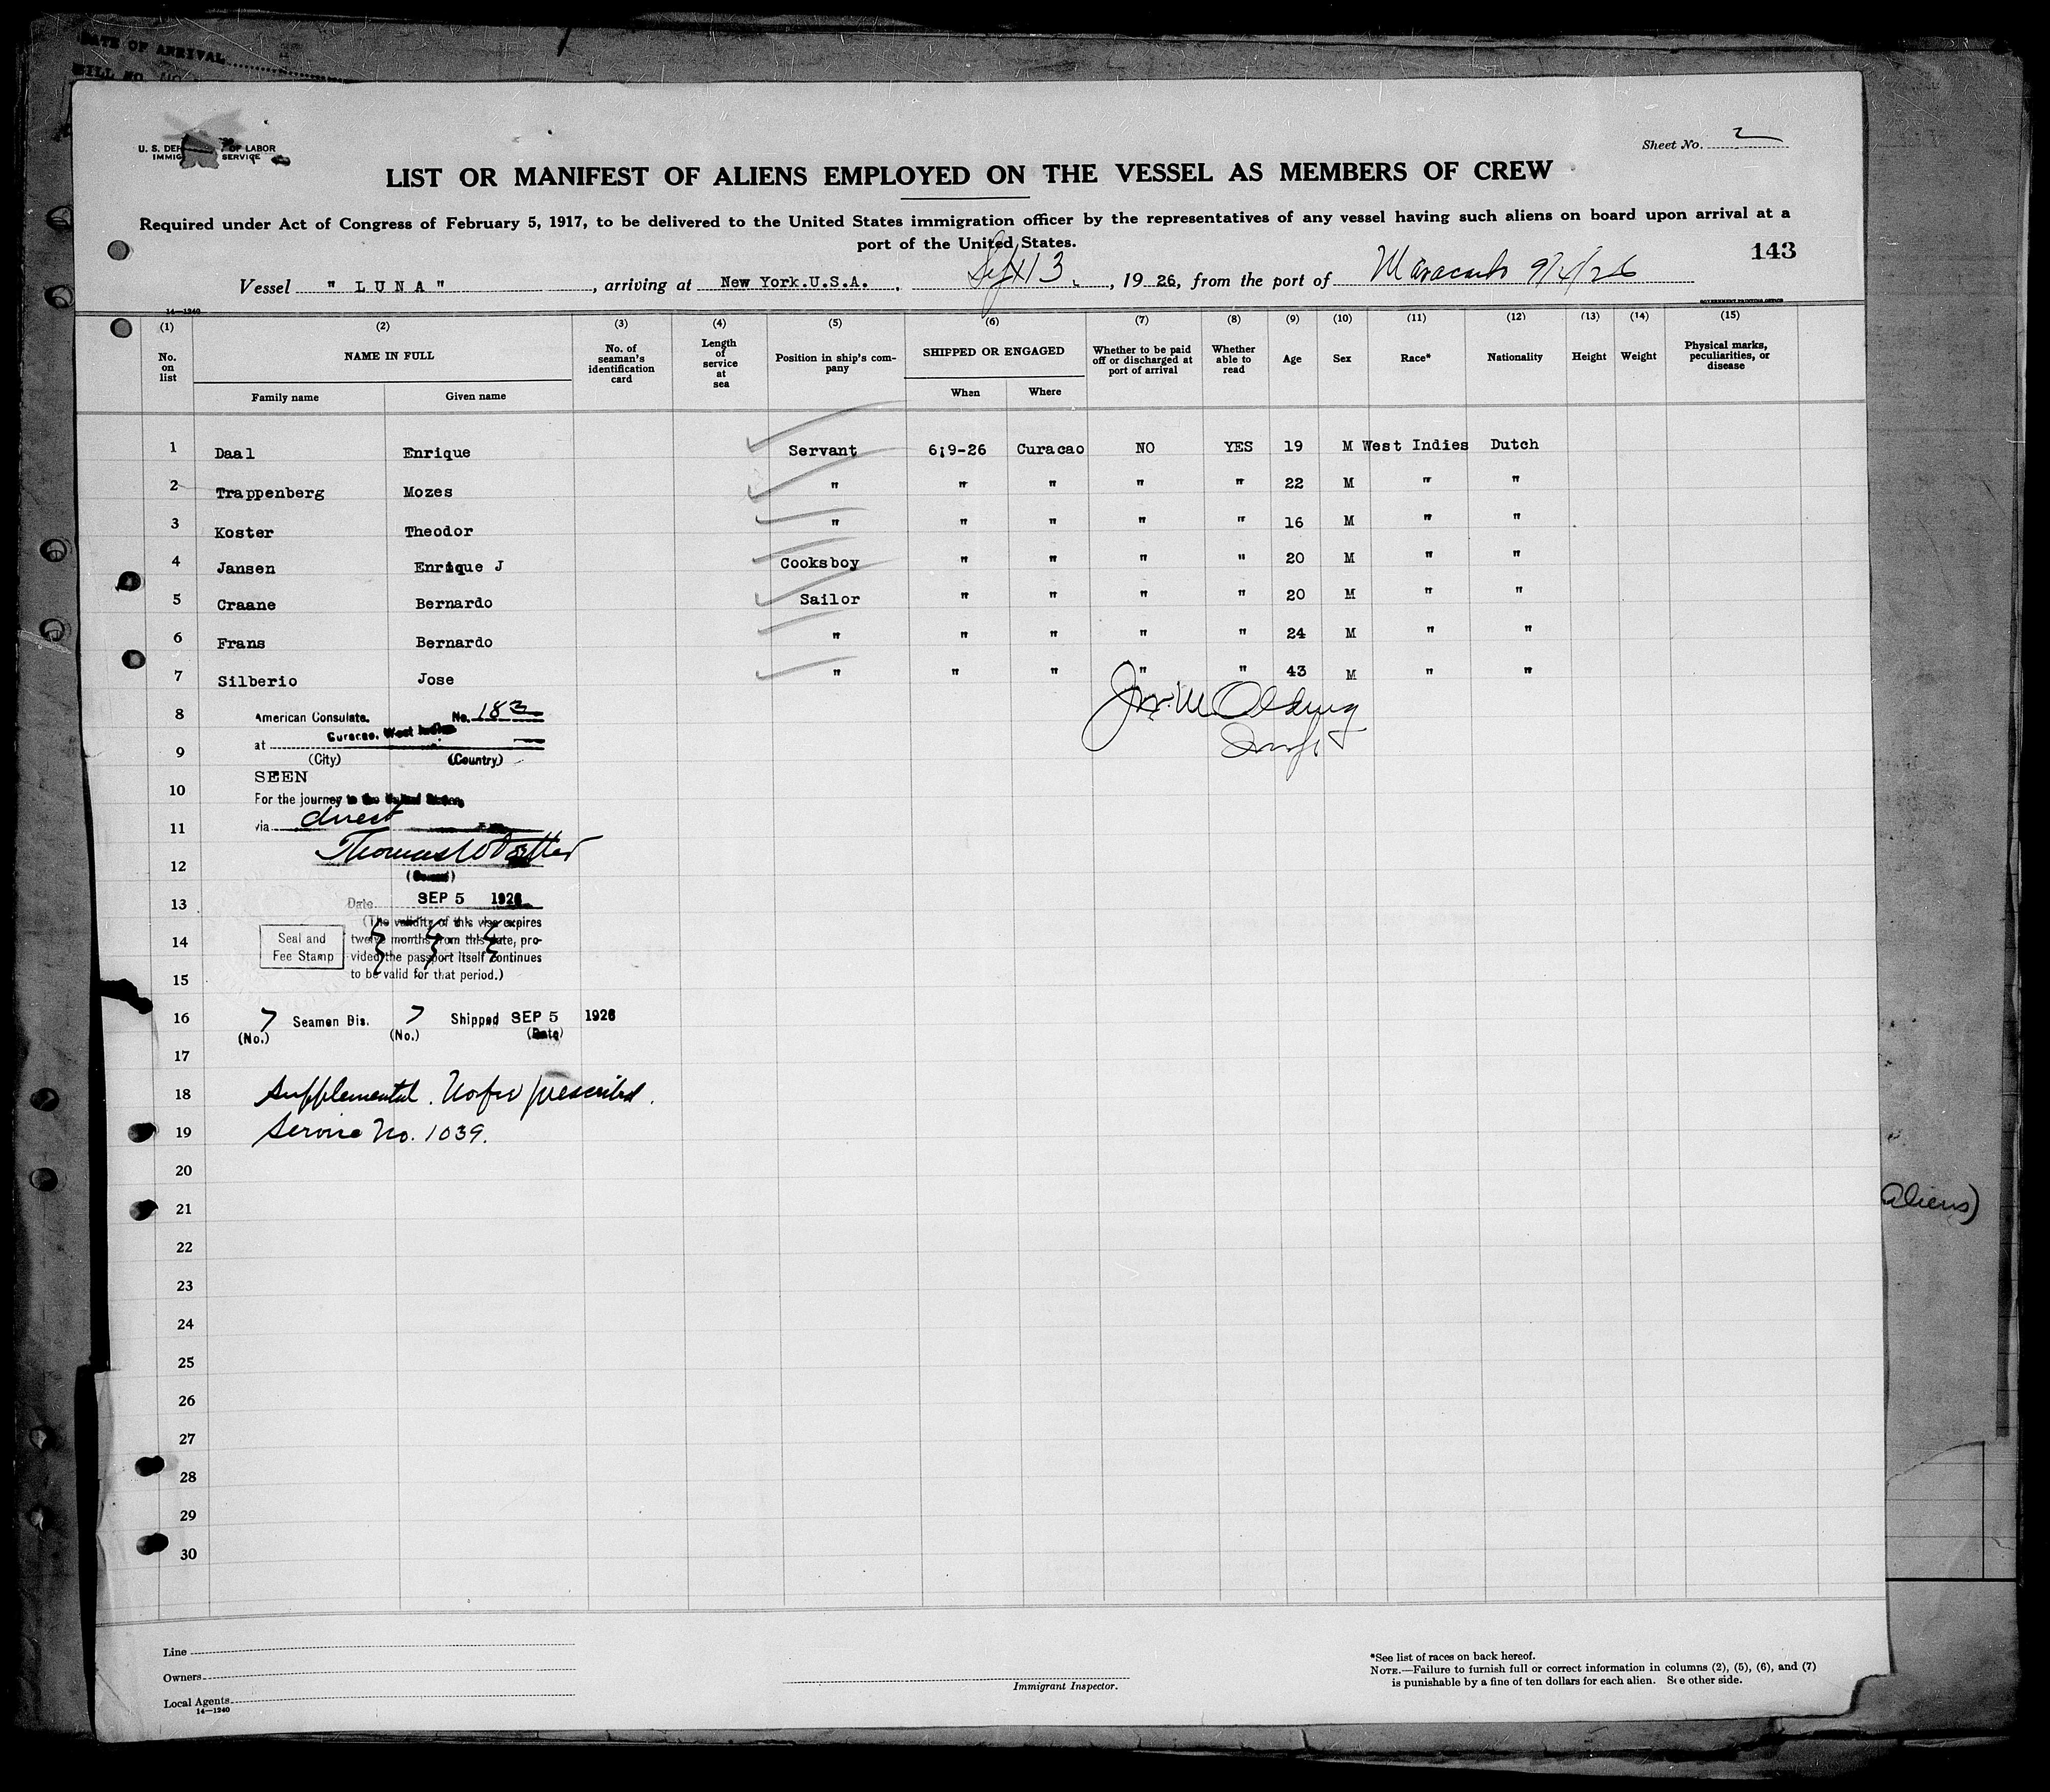 DATE OF ARRIVAL
BILL NO.
U. S. DEP OF LABOR
IMMIG SERVICE
Sheet No. 2
LIST OR MANIFEST OF ALIENS EMPLOYED ON THE VESSEL AS MEMBERS OF CREW
Required under Act of Congress of February 5, 1917, to be delivered to the United States immigration officer by the representatives of any vessel having such aliens on board upon arrival at a
port of the United States.
143
Vessel " L U N A " , arriving at New York.U.S.A. , Sept 13 , 19 26, from the port of Maracaibo 9/4/26
14—1240
GOVERNMENT PRINTING OFFICE
(1) (2) (3) (4) (5) (6) (7) (8) (9) (10) (11) (12) (13) (14) (15)
No. on list NAME IN FULL No. of seaman's identification card Length of service at sea Position in ship's company SHIPPED OR ENGAGED Whether to be paid off or discharged at port of arrival Whether able to read Age Sex Race* Nationality Height Weight Physical marks, peculiarities, or disease
Family name Given name When Where
1 Daal Enrique Servant 6¡9-26 Curacao NO YES 19 M West Indies Dutch
2 Trappenberg Mozes " " " " " 22 M " "
3 Koster Theodor " " " " " 16 M " "
4 Jansen Enrique J Cooksboy " " " " 20 M " "
5 Craane Bernardo Sailor " " " " 20 M " "
6 Frans Bernardo " " " " " 24 M " "
7 Silberio Jose " " " " " 43 M " "
8 American Consulate. No. 183
Curacao, West Indies
9 at
(City) (Country)
SEEN
10 For the journey to the United States,
11 via direct
12 Thomas W
13 Date SEP 5 1926
(The validity of this visa expires
14 Seal and Fee Stamp twelve months from this date, pro-
vided the passport itself continues
15 to be valid for that period.)
16 7 Seamen Dis. 7 Shipped SEP 5 1926
(No.) (No.) (Date)
17
18 Supplemental. No fee prescribed.
19 Service No. 1039.
20
21
22
23
24
25
26
27
28
29
30
aliens)
Line
Owners
Local Agents
14—1240
Immigrant Inspector.
*See list of races on back hereof.
NOTE.—Failure to furnish full or correct information in columns (2), (5), (6), and (7)
is punishable by a fine of ten dollars for each alien. See other side.